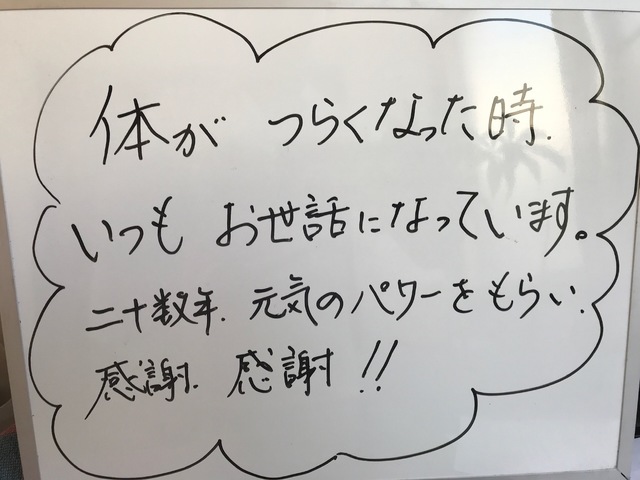 体が つらくなった時.
いつも お世話になっています。
二十数年. 元気のパワーをもらい.
感謝. 感謝!!